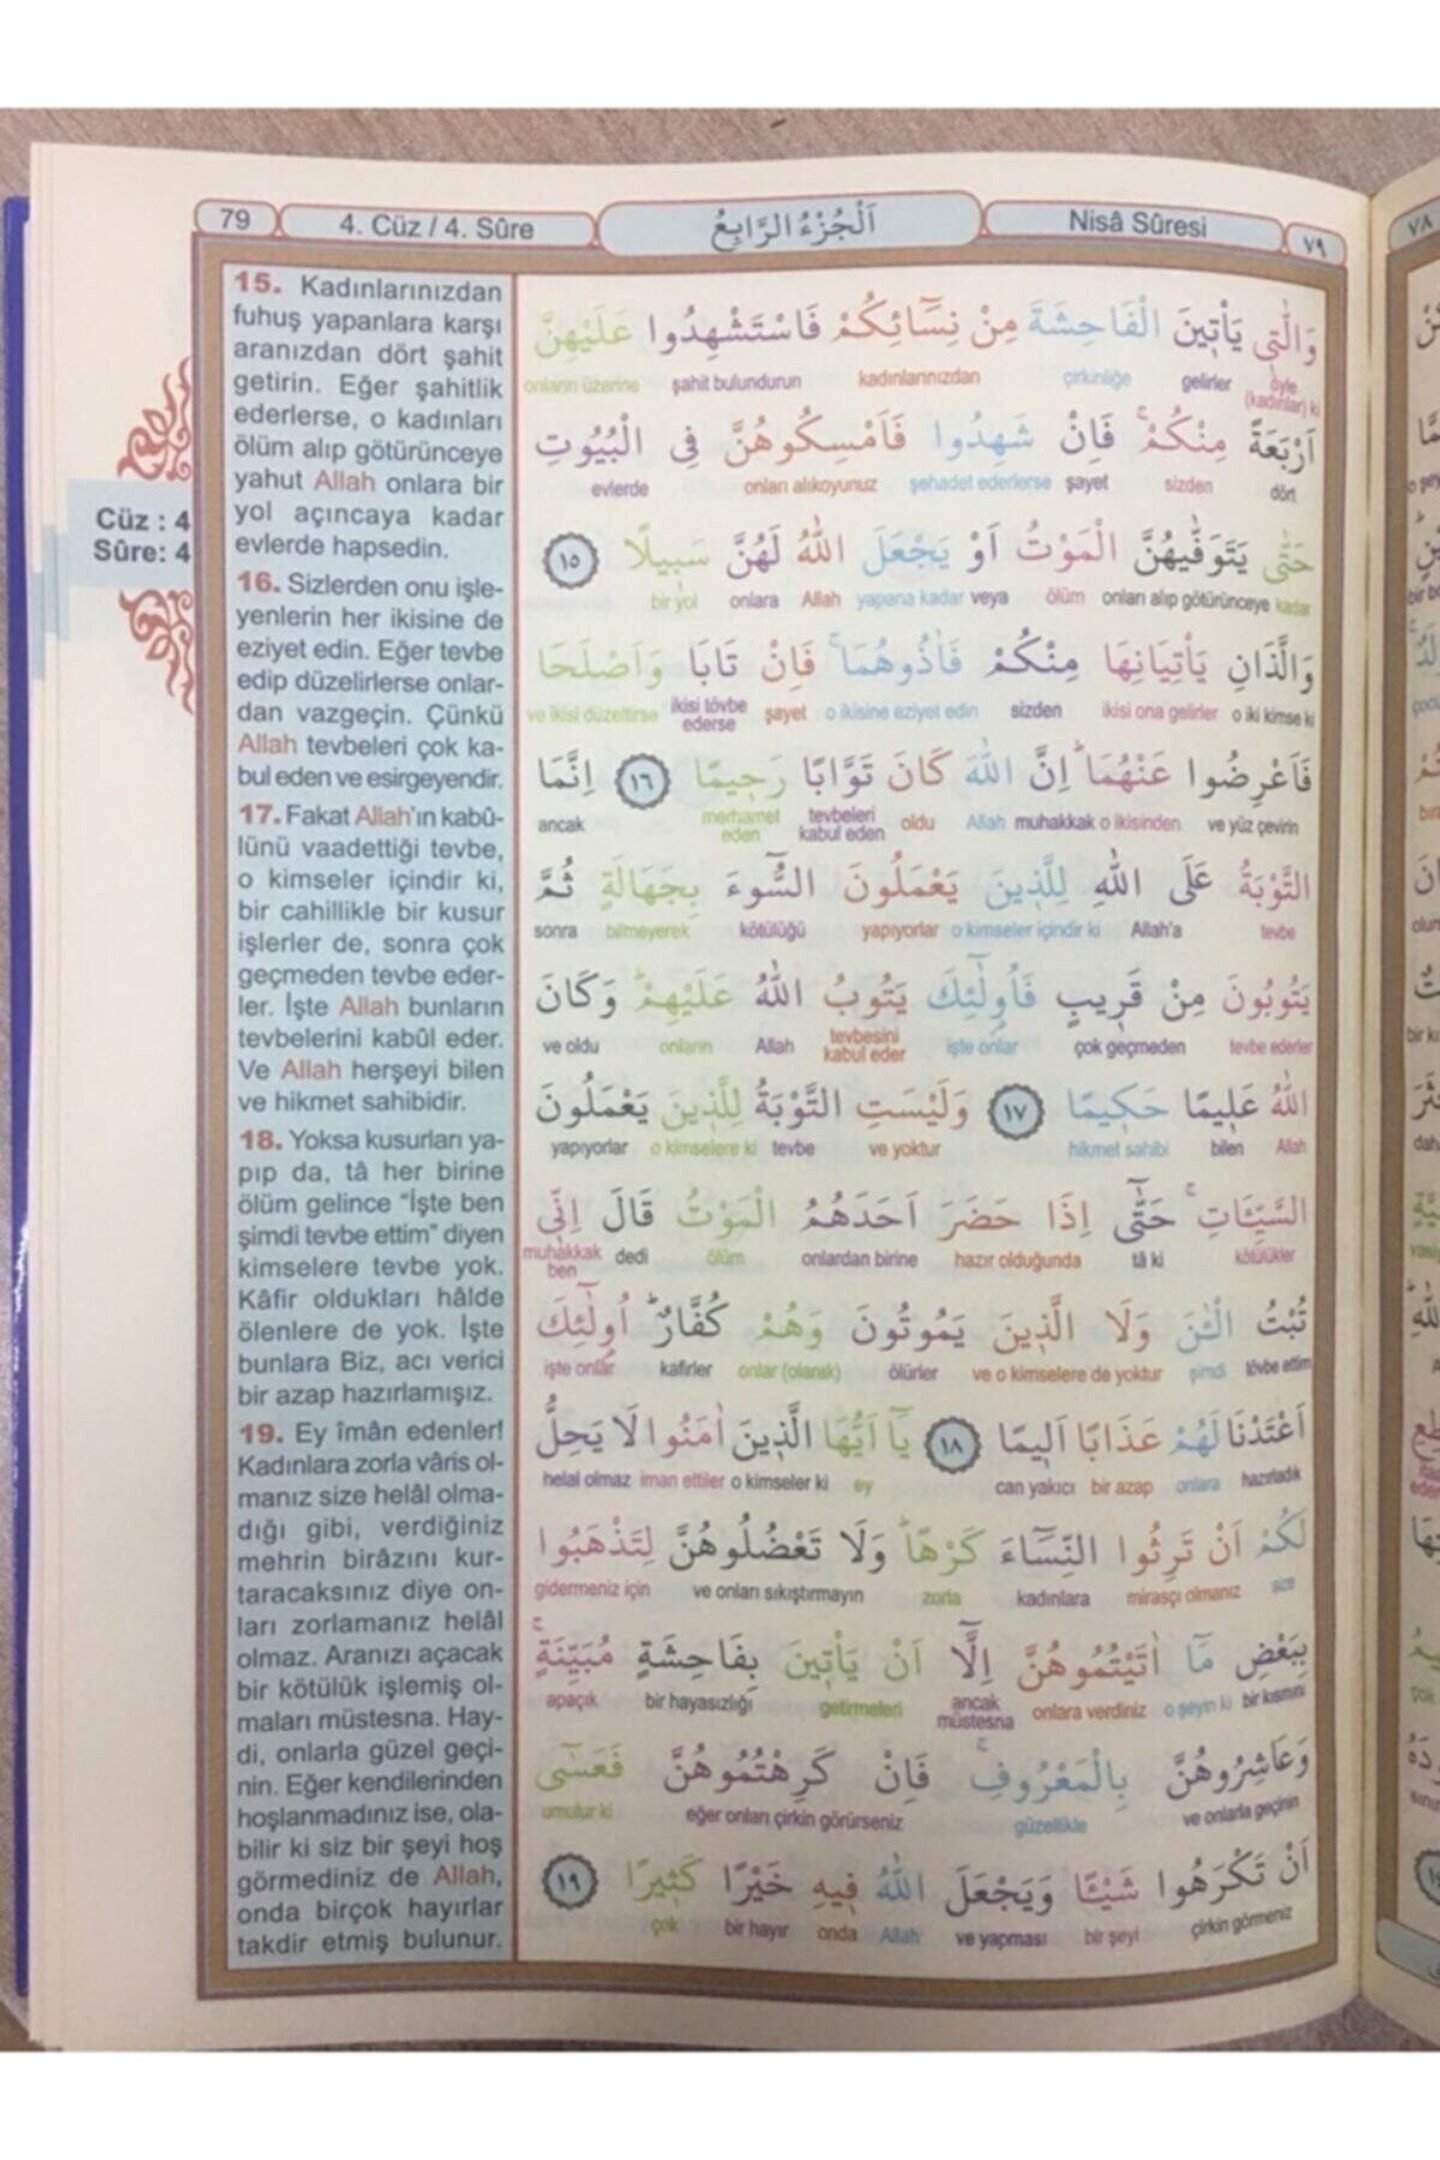 79
4. Cüz / 4. Sûre
اَلْجُزْءُ الرَّابِعُ
Nisâ Sûresi
٧٩
٧٨
Cüz : 4
Sûre: 4
15. Kadınlarınızdan
fuhuş yapanlara karşı
aranızdan dört şahit
getirin. Eğer şahitlik
ederlerse, o kadınları
ölüm alıp götürünceye
yahut Allah onlara bir
yol açıncaya kadar
evlerde hapsedin.
16. Sizlerden onu işle-
yenlerin her ikisine de
eziyet edin. Eğer tevbe
edip düzelirlerse onlar-
dan vazgeçin. Çünkü
Allah tevbeleri çok ka-
bul eden ve esirgeyendir.
17. Fakat Allah'ın kabû-
lünü vaadettiği tevbe,
o kimseler içindir ki,
bir cahillikle bir kusur
işlerler de, sonra çok
geçmeden tevbe eder-
ler. İşte Allah bunların
tevbelerini kabûl eder.
Ve Allah herşeyi bilen
ve hikmet sahibidir.
18. Yoksa kusurları ya-
pıp da, tâ her birine
ölüm gelince "İşte ben
şimdi tevbe ettim" diyen
kimselere tevbe yok.
Kâfir oldukları hâlde
ölenlere de yok. İşte
bunlara Biz, acı verici
bir azap hazırlamışız.
19. Ey îmân edenler!
Kadınlara zorla vâris ol-
manız size helâl olma-
dığı gibi, verdiğiniz
mehrin birâzını kur-
taracaksınız diye on-
ları zorlamanız helâl
olmaz. Aranızı açacak
bir kötülük işlemiş ol-
maları müstesna. Hay-
di, onlarla güzel geçi-
nin. Eğer kendilerinden
hoşlanmadınız ise, ola-
bilir ki siz bir şeyi hoş
görmediniz de Allah,
onda birçok hayırlar
takdir etmiş bulunur.
وَالّٰتٖى يَاْتٖينَ الْفَاحِشَةَ مِنْ نِسَٓائِكُمْ فَاسْتَشْهِدُوا عَلَيْهِنَّ
öyle (kadınlar) ki gelirler çirkinliğe kadınlarınızdan şahit bulundurun onların üzerine
اَرْبَعَةً مِنْكُمْۚ فَاِنْ شَهِدُوا فَاَمْسِكُوهُنَّ فِى الْبُيُوتِ
dört sizden şayet şehadet ederlerse onları alıkoyunuz evlerde
حَتّٰى يَتَوَفّٰيهُنَّ الْمَوْتُ اَوْ يَجْعَلَ اللّٰهُ لَهُنَّ سَبٖيلًا ١٥
kadar onları alıp götürünceye ölüm veya yapana kadar Allah onlara bir yol
وَالَّذَانِ يَاْتِيَانِهَا مِنْكُمْ فَاٰذُوهُمَاۚ فَاِنْ تَابَا وَاَصْلَحَا
o iki kimse ki ikisi ona gelirler sizden o ikisine eziyet edin şayet ikisi tövbe ederse ve ikisi düzeltirse
فَاَعْرِضُوا عَنْهُمَاؕ اِنَّ اللّٰهَ كَانَ تَوَّابًا رَحٖيمًا ١٦ اِنَّمَا
ve yüz çevirin o ikisinden muhakkak Allah oldu tevbeleri kabul eden merhamet eden ancak
التَّوْبَةُ عَلَى اللّٰهِ لِلَّذٖينَ يَعْمَلُونَ السُّٓوءَ بِجَهَالَةٍ ثُمَّ
tevbe Allah'a o kimseler içindir ki yapıyorlar kötülüğü bilmeyerek sonra
يَتُوبُونَ مِنْ قَرٖيبٍ فَاُولٰٓئِكَ يَتُوبُ اللّٰهُ عَلَيْهِمْؕ وَكَانَ
tevbe ederler çok geçmeden işte onlar tevbesini kabul eder Allah onların ve oldu
اللّٰهُ عَلٖيمًا حَكٖيمًا ١٧ وَلَيْسَتِ التَّوْبَةُ لِلَّذٖينَ يَعْمَلُونَ
Allah bilen hikmet sahibi ve yoktur tevbe o kimselere ki yapıyorlar
السَّيِّـَٔاتِۚ حَتّٰٓى اِذَا حَضَرَ اَحَدَهُمُ الْمَوْتُ قَالَ اِنّٖى
kötülükler tâ ki hazır olduğunda onlardan birine ölüm dedi muhakkak ben
تُبْتُ الْـٰٔنَ وَلَا الَّذٖينَ يَمُوتُونَ وَهُمْ كُفَّارٌؕ اُولٰٓئِكَ
tövbe ettim şimdi ve o kimselere de yoktur ölürler onlar (olarak) kafirler işte onlar
اَعْتَدْنَا لَهُمْ عَذَابًا اَلٖيمًا ١٨ يَٓا اَيُّهَا الَّذٖينَ اٰمَنُوا لَا يَحِلُّ
hazırladık onlara bir azap can yakıcı ey o kimseler ki iman ettiler helal olmaz
لَكُمْ اَنْ تَرِثُوا النِّسَٓاءَ كَرْهًاؕ وَلَا تَعْضُلُوهُنَّ لِتَذْهَبُوا
size mirasçı olmanız kadınlara zorla ve onları sıkıştırmayın gidermeniz için
بِبَعْضِ مَٓا اٰتَيْتُمُوهُنَّ اِلَّٓا اَنْ يَاْتٖينَ بِفَاحِشَةٍ مُبَيِّنَةٍۚ
bir kısmını o şeyin ki onlara verdiniz ancak müstesna getirmeleri bir hayasızlığı apaçık
وَعَاشِرُوهُنَّ بِالْمَعْرُوفِۚ فَاِنْ كَرِهْتُمُوهُنَّ فَعَسٰٓى
ve onlarla geçinin güzellikle eğer onları çirkin görürseniz umulur ki
اَنْ تَكْرَهُوا شَيْـًٔا وَيَجْعَلَ اللّٰهُ فٖيهِ خَيْرًا كَثٖيرًا ١٩
çirkin görmeniz bir şeyi ve yapması Allah onda bir hayır çok